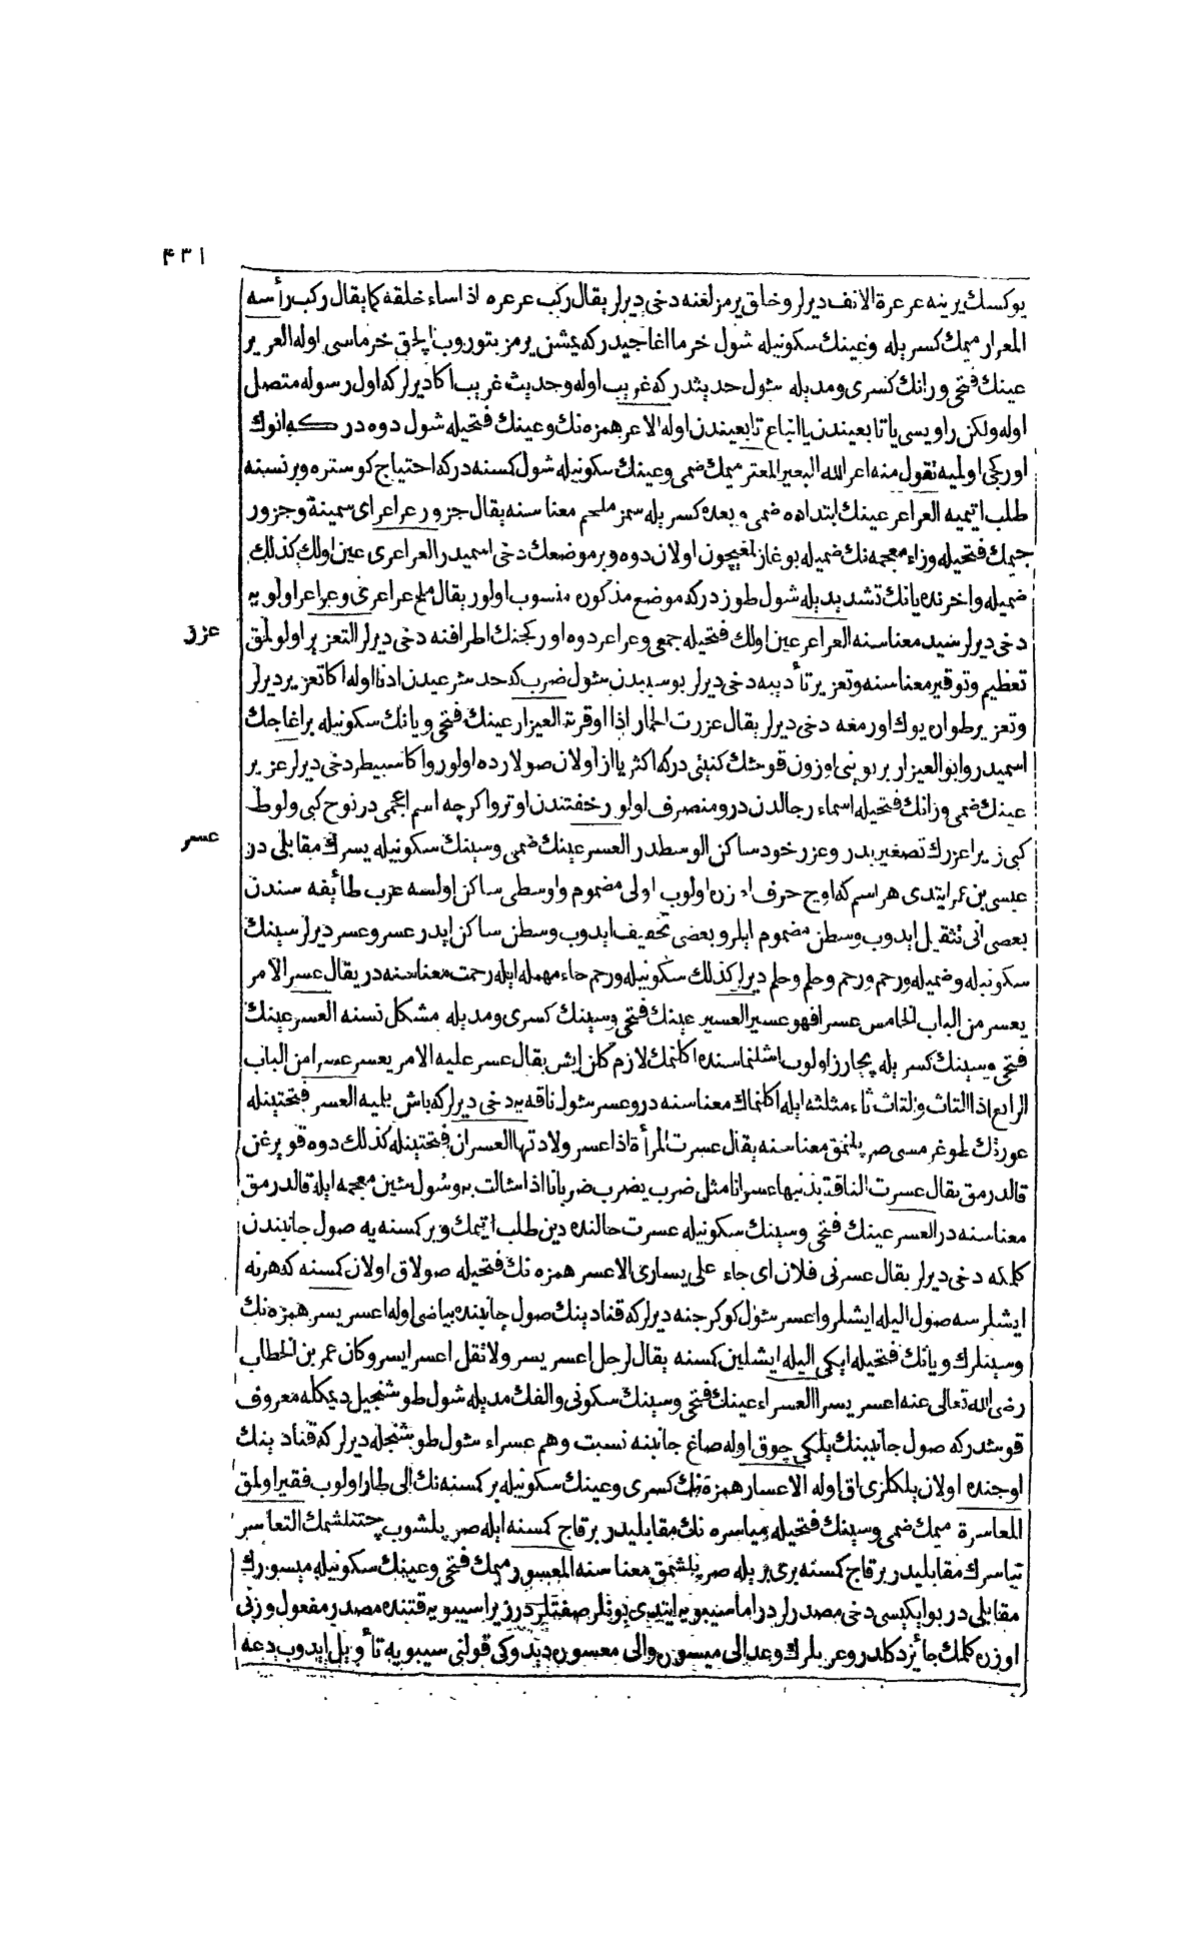 ٤٣١
يوكسك يرينه عرعرة الانف ديرلر وخلق يرمزلغنه دخى ديرلر يقال ركب عرعره اذا ساء خلقه كما يقال ركب رأسه
المعرار ميمك كسريله وعينك سكونيله شول خرما اغاجيدر كه يمشن يرمز بتوروب الچق خرماسى اوله العرير
عينك فتحى ورانك كسرى ومديله شول حديثدر كه غريب اوله وحديث غريب اكا ديرلر كه اول رسوله متصل
اوله ولكن راويسى يا تابعيندن يا اتباع تابعيندن اوله الاعر همزه نك وعينك فتحيله شول دوه در كه انوك
اوركجى اولميه تقول منه اعر الله البعير المعتر ميمك ضمى وعينك سكونيله شول كسنه در كه احتياج كوستره وبر نسنه
طلب اتميه العراعر عينك ابتداده ضمى وبعده كسريله سمز ملحم معناسنه يقال جزور عراعر اى سمينة وجزور
جيمك فتحيله وزاء معجمه نك ضميله بوغازلغيچون اولان دوه وبر موضعك دخى اسميدر العراعرى عين اولك كذلك
ضميله واخرنده يانك تشديديله شول طوزدر كه موضع مذكوره منسوب اولور يقال ملح عراعرى وعراعر اولويه
دخى ديرلر سيد معناسنه العراعر عين اولك فتحيله جمعى وعراعر دوه اوركجنك اطرافنه دخى ديرلر التعزير اولولمق
عزر
تعظيم وتوقير معناسنه وتعزير تأديبه دخى ديرلر بو سببدن شول ضرب كه حد شرعيدن ادنا اوله اكا تعزير ديرلر
وتعزير طواره يوك اورمغه دخى ديرلر يقال عزرت الحمار اذا اوقرته العيزار عينك فتحى ويانك سكونيله بر اغاجك
اسميدر وابو العيزار بر بوينى اوزون قوشك كنيتى در كه اكثر ياز اولان صولارده اولور واكا سبيطر دخى ديرلر عزير
عينك ضمى وزانك فتحيله اسماء رجالدن در ومنصرف اولور خفتندن اوترو اكرچه اسم اعجمى در نوح كبى ولوط
كبى زيرا عزرك تصغيريدر وعزر خود ساكن الوسطدر العسر عينك ضمى وسينك سكونيله يسرك مقابلى در
عسر
عيسى بن عمر ايتدى هر اسم كه اوچ حرف اوزره اولوب اولى مضموم واوسطى ساكن اولسه عرب طائفه سندن
بعضى انى تثقيل ايدوب وسطن مضموم ايلر وبعضى تخفيف ايدوب وسطن ساكن ايدر عسر وعسر ديرلر سينك
سكونيله وضميله ورحم ورحم وحلم وحلم ديرلر كذلك سكونيله ورحم حاء مهمله ايله رحمت معناسنه در يقال عسر الامر
يعسر من الباب الخامس عسرا فهو عسير العسير عينك فتحى وسينك كسرى ومديله مشكل نسنه العسر عينك
فتحى وسينك كسريله بيچارز اولوب اشلنماسنده اكلنمك لازم كلن ايش يقال عسر عليه الامر يعسر عسرا من الباب
الرابع اذا التاث والتاث ثاء مثلثه ايله اكلنمك معناسنه در وعسر شول ناقه يه دخى ديرلر كه باش بليه العسر فتحتينله
عورتك طوغرمسى صرپلنمق معناسنه يقال عسرت المرأة اذا عسر ولادتها العسران فتحتينله كذلك دوه قويرغن
قالدرمق يقال عسرت الناقة بذنبها عسرانا مثل ضرب يضرب ضربانا اذا شالت به وشول شين معجمه ايله قالدرمق
معناسنه در العسر عينك فتحى وسينك سكونيله عسرت حالنده دين طلب اتيمك وبر كسنه يه صول جانبندن
كلمكه دخى ديرلر يقال عسرنى فلان اى جاء على يسارى الاعسر همزه نك فتحيله صولاق اولان كسنه كه هر نه
ايشلرسه صول اليله ايشلر واعسر شول كوكرجنه ديرلر كه قنادينك صول جانبنده بياضى اوله اعسر يسر همزه نك
وسينلرك ويانك فتحيله ايكى اليله ايشلين كسنه يقال رجل اعسر يسر ولا تقل اعسر ايسر وكان عمر بن الخطاب
رضى الله تعالى عنه اعسر يسرا العسراء عينك فتحى وسينك سكونى والفك مديله شول طوشنجيل ديمكله معروف
قوشدر كه صول جانبينك يلكى چوق اوله صاغ جانبنه نسبت وهم عسراء شول طوشنجله ديرلر كه قنادينك
اوجنده اولان يلكلرى اق اوله الاعسار همزه نك كسرى وعينك سكونيله بر كسنه نك الى طار اولوب فقير اولمق
المعاسرة ميمك ضمى وسينك فتحيله مياسره نك مقابليدر بر قاچ كسنه ايله صرپلشوب چتنلشمك التعاسر
تياسرك مقابليدر بر قاچ كسنه برى بريله صرپلشمق معناسنه المعسور ميمك فتحى وعينك سكونيله ميسورك
مقابلى در بو ايكيسى دخى مصدرلر در اما سيبويه ايتدى بونلر صفتلر در زيرا سيبويه قتنده مصدر مفعول وزنى
اوزره كلمك جائز دكلدر وعربلرك وعد الى ميسوره والى معسوره ديدوكى قولنى سيبويه تأويل ايدوب دعه